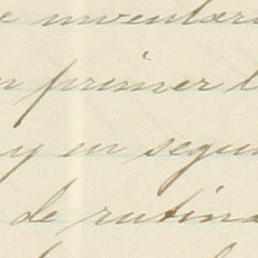 e inventari
n primer l
y en segui
de rutina